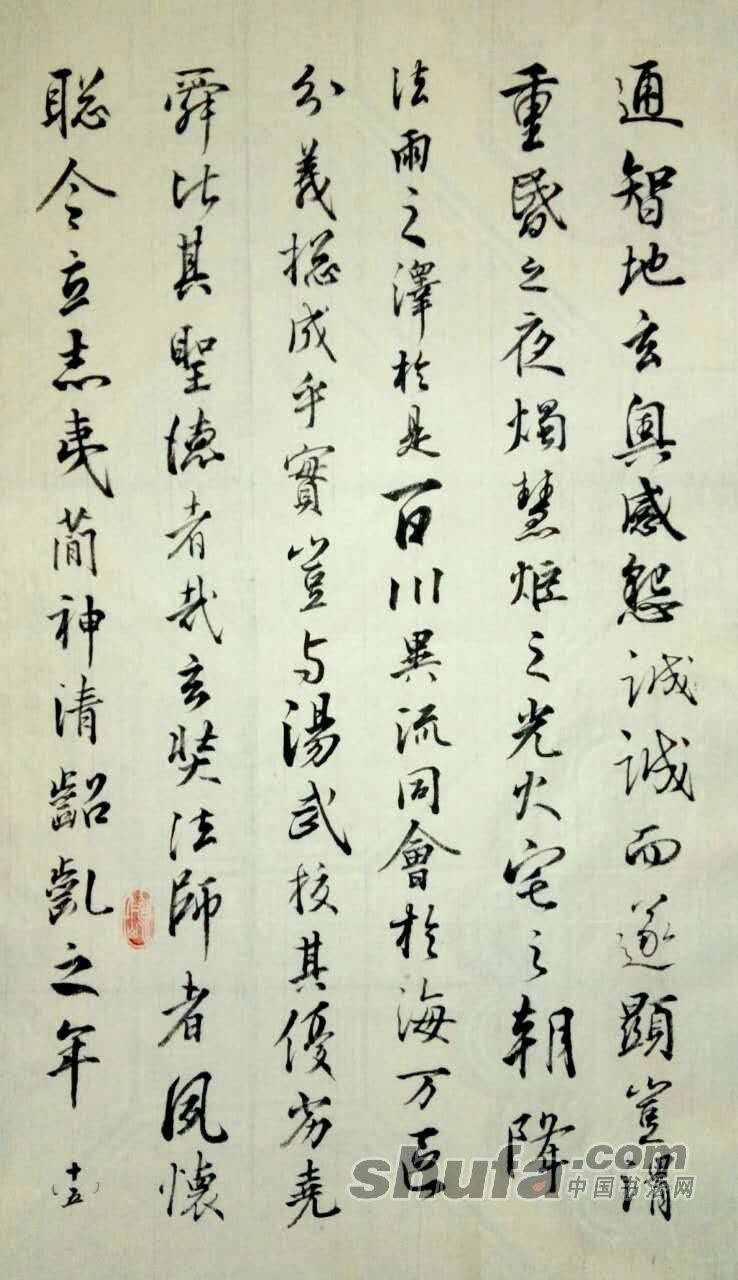 通智地玄奧感懇誠誠而遂顯豈謂
重昏之夜燭慧炬之光火宅之朝降
法雨之澤於是百川異流同會於海万區
分義揔成乎實豈与湯武校其優劣堯
舜比其聖德者哉玄奘法師者夙懷
聡令立志夷簡神清齠齔之年
(十五)
shufa.com
中国书法网